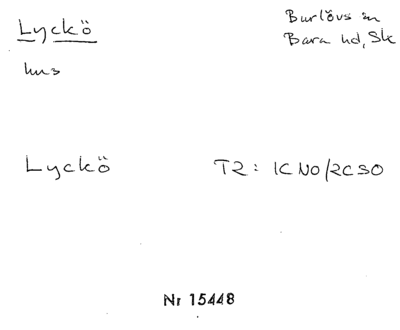 Lyckö
Burlövs sn
Bara hd, Sk
hus
Lyckö
T2: 1C NO/2C SO
Nr 15448